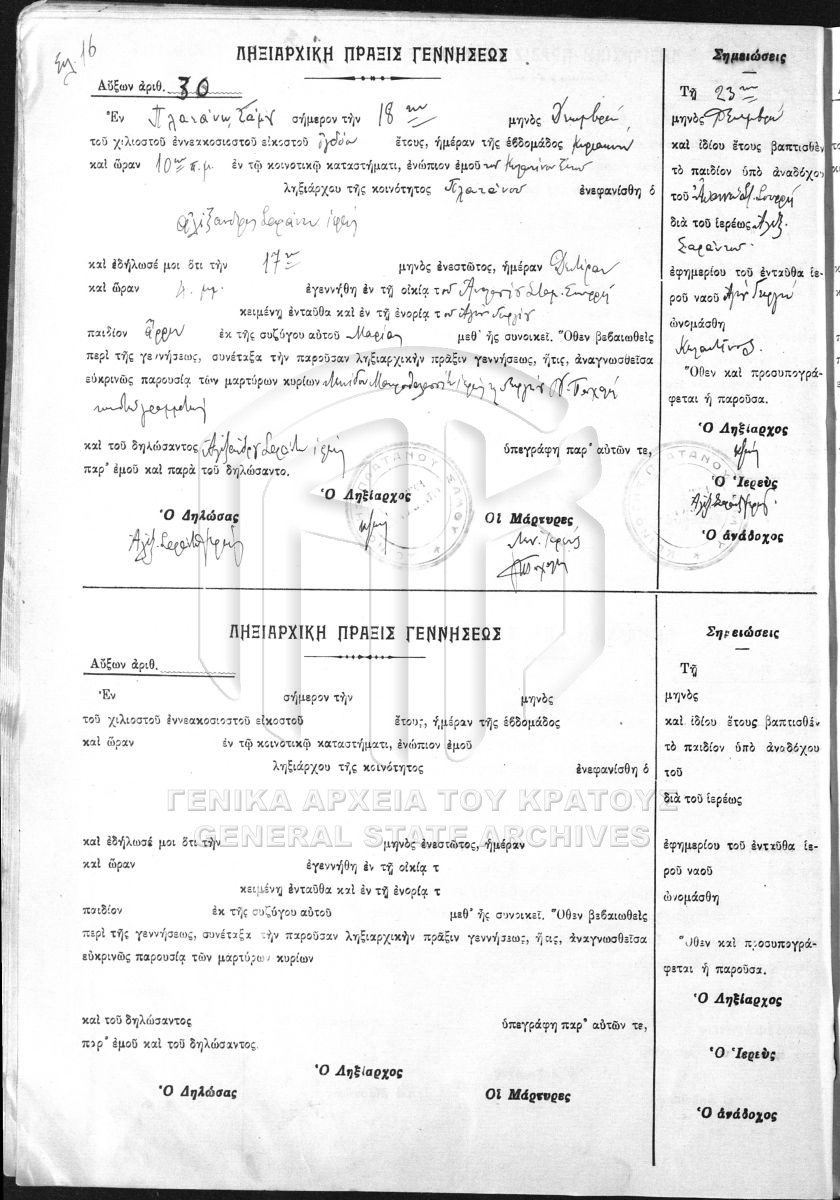 Σελ. 16
ΛΗΞΙΑΡΧΙΚΗ ΠΡΑΞΙΣ ΓΕΝΝΗΣΕΩΣ
Αὔξων ἀριθ. 30
Ἐν Πλατάνῳ Σάμου σήμερον τὴν 18ην μηνὸς
τοῦ χιλιοστοῦ ἐννεακοσιοστοῦ εἰκοστοῦ ὀγδόου ἔτους, ἡμέραν τῆς ἑβδομάδος Κυριακὴν
καὶ ὥραν 10ην π.μ. ἐν τῷ κοινοτικῷ καταστήματι, ἐνώπιον ἐμοῦ
ληξιάρχου τῆς κοινότητος Πλατάνου ἐνεφανίσθη ὁ
Ἀλέξανδρος Σαράντου ἱερεὺς
καὶ ἐδήλωσέ μοι ὅτι τὴν 17ην μηνὸς ἐνεστῶτος, ἡμέραν
καὶ ὥραν 4 μμ. ἐγεννήθη ἐν τῇ οἰκίᾳ τοῦ
κειμένῃ ἐνταῦθα καὶ ἐν τῇ ἐνορίᾳ τοῦ Ἁγίου Γεωργίου
παιδίον ἄρρεν ἐκ τῆς συζύγου αὐτοῦ Μαρίας μεθ' ἧς συνοικεῖ. Ὅθεν βεβαιωθεὶς
περὶ τῆς γεννήσεως, συνέταξα τὴν παροῦσαν ληξιαρχικὴν πρᾶξιν γεννήσεως, ἥτις, ἀναγνωσθεῖσα
εὐκρινῶς παρουσίᾳ τῶν μαρτύρων κυρίων
καὶ τοῦ δηλώσαντος Ἀλεξάνδρου Σαράντου ἱερέως ὑπεγράφη παρ' αὐτῶν τε,
παρ' ἐμοῦ καὶ παρὰ τοῦ δηλώσαντο.
Ὁ Ληξίαρχος
Ὁ Δηλώσας
Οἱ Μάρτυρες
Σημειώσεις
Τῇ 23ῃ
μηνὸς
καὶ ἰδίου ἔτους βαπτισθὲν
τὸ παιδίον ὑπὸ ἀναδόχου
τοῦ
διὰ τοῦ ἱερέως Ἀλεξ.
Σαράντου
ἐφημερίου τοῦ ἐνταῦθα ἱε-
ροῦ ναοῦ Ἁγίου Γεωργίου
ὠνομάσθη
Κωνσταντῖνος.
Ὅθεν καὶ προσυπογρά-
φεται ἡ παροῦσα.
Ὁ Ληξίαρχος
Ὁ Ἱερεὺς
Ὁ ἀνάδοχος
ΛΗΞΙΑΡΧΙΚΗ ΠΡΑΞΙΣ ΓΕΝΝΗΣΕΩΣ
Αὔξων ἀριθ.
Ἐν σήμερον τὴν μηνὸς
τοῦ χιλιοστοῦ ἐννεακοσιοστοῦ εἰκοστοῦ ἔτους, ἡμέραν τῆς ἑβδομάδος
καὶ ὥραν ἐν τῷ κοινοτικῷ καταστήματι, ἐνώπιον ἐμοῦ
ληξιάρχου τῆς κοινότητος ἐνεφανίσθη ὁ
ΓΕΝΙΚΑ ΑΡΧΕΙΑ ΤΟΥ ΚΡΑΤΟΥΣ
GENERAL STATE ARCHIVES
καὶ ἐδήλωσέ μοι ὅτι τὴν μηνὸς ἐνεστῶτος, ἡμέραν
καὶ ὥραν ἐγεννήθη ἐν τῇ οἰκίᾳ τ
κειμένῃ ἐνταῦθα καὶ ἐν τῇ ἐνορίᾳ τ
παιδίον ἐκ τῆς συζύγου αὐτοῦ μεθ' ἧς συνοικεῖ. Ὅθεν βεβαιωθεὶς
περὶ τῆς γεννήσεως, συνέταξα τὴν παροῦσαν ληξιαρχικὴν πρᾶξιν γεννήσεως, ἥτις, ἀναγνωσθεῖσα
εὐκρινῶς παρουσίᾳ τῶν μαρτύρων κυρίων
καὶ τοῦ δηλώσαντος ὑπεγράφη παρ' αὐτῶν τε,
παρ' ἐμοῦ καὶ τοῦ δηλώσαντος.
Ὁ Ληξίαρχος
Ὁ Δηλώσας
Οἱ Μάρτυρες
Σημειώσεις
Τῇ
μηνὸς
καὶ ἰδίου ἔτους βαπτισθὲν
τὸ παιδίον ὑπὸ ἀναδόχου
τοῦ
διὰ τοῦ ἱερέως
ἐφημερίου τοῦ ἐνταῦθα ἱε-
ροῦ ναοῦ
ὠνομάσθη
Ὅθεν καὶ προσυπογρά-
φεται ἡ παροῦσα.
Ὁ Ληξίαρχος
Ὁ Ἱερεὺς
Ὁ ἀνάδοχος